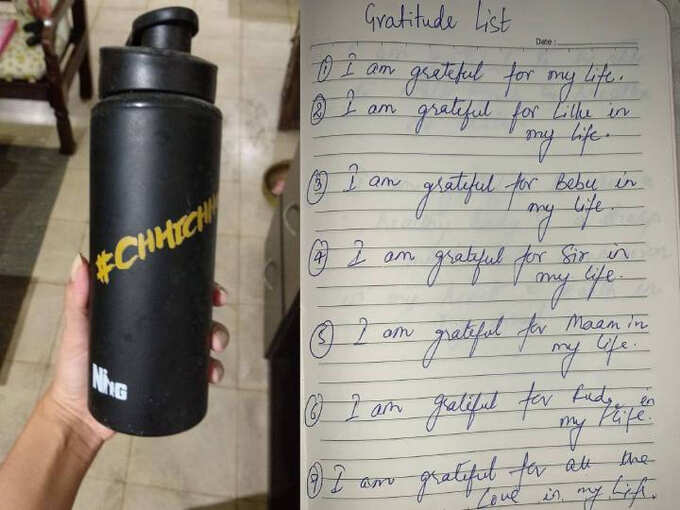 #CHHICHH
NNG
Gratitude List
Date :
① I am grateful for my life.
② I am grateful for Lillu in
my life.
③ I am grateful for Bebu in
my life.
④ I am grateful for Sir in
my life.
⑤ I am grateful for Maam in
my life.
⑥ I am grateful for in
my life.
⑦ I am grateful for all the
Love in my Life.